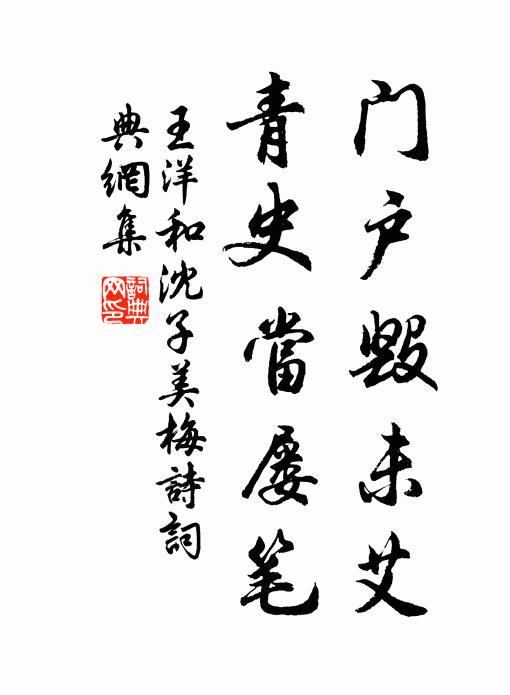 门户毁未艾
青史當屡笔
王洋和沈子美梅詩詞
典網集
詞典
网印